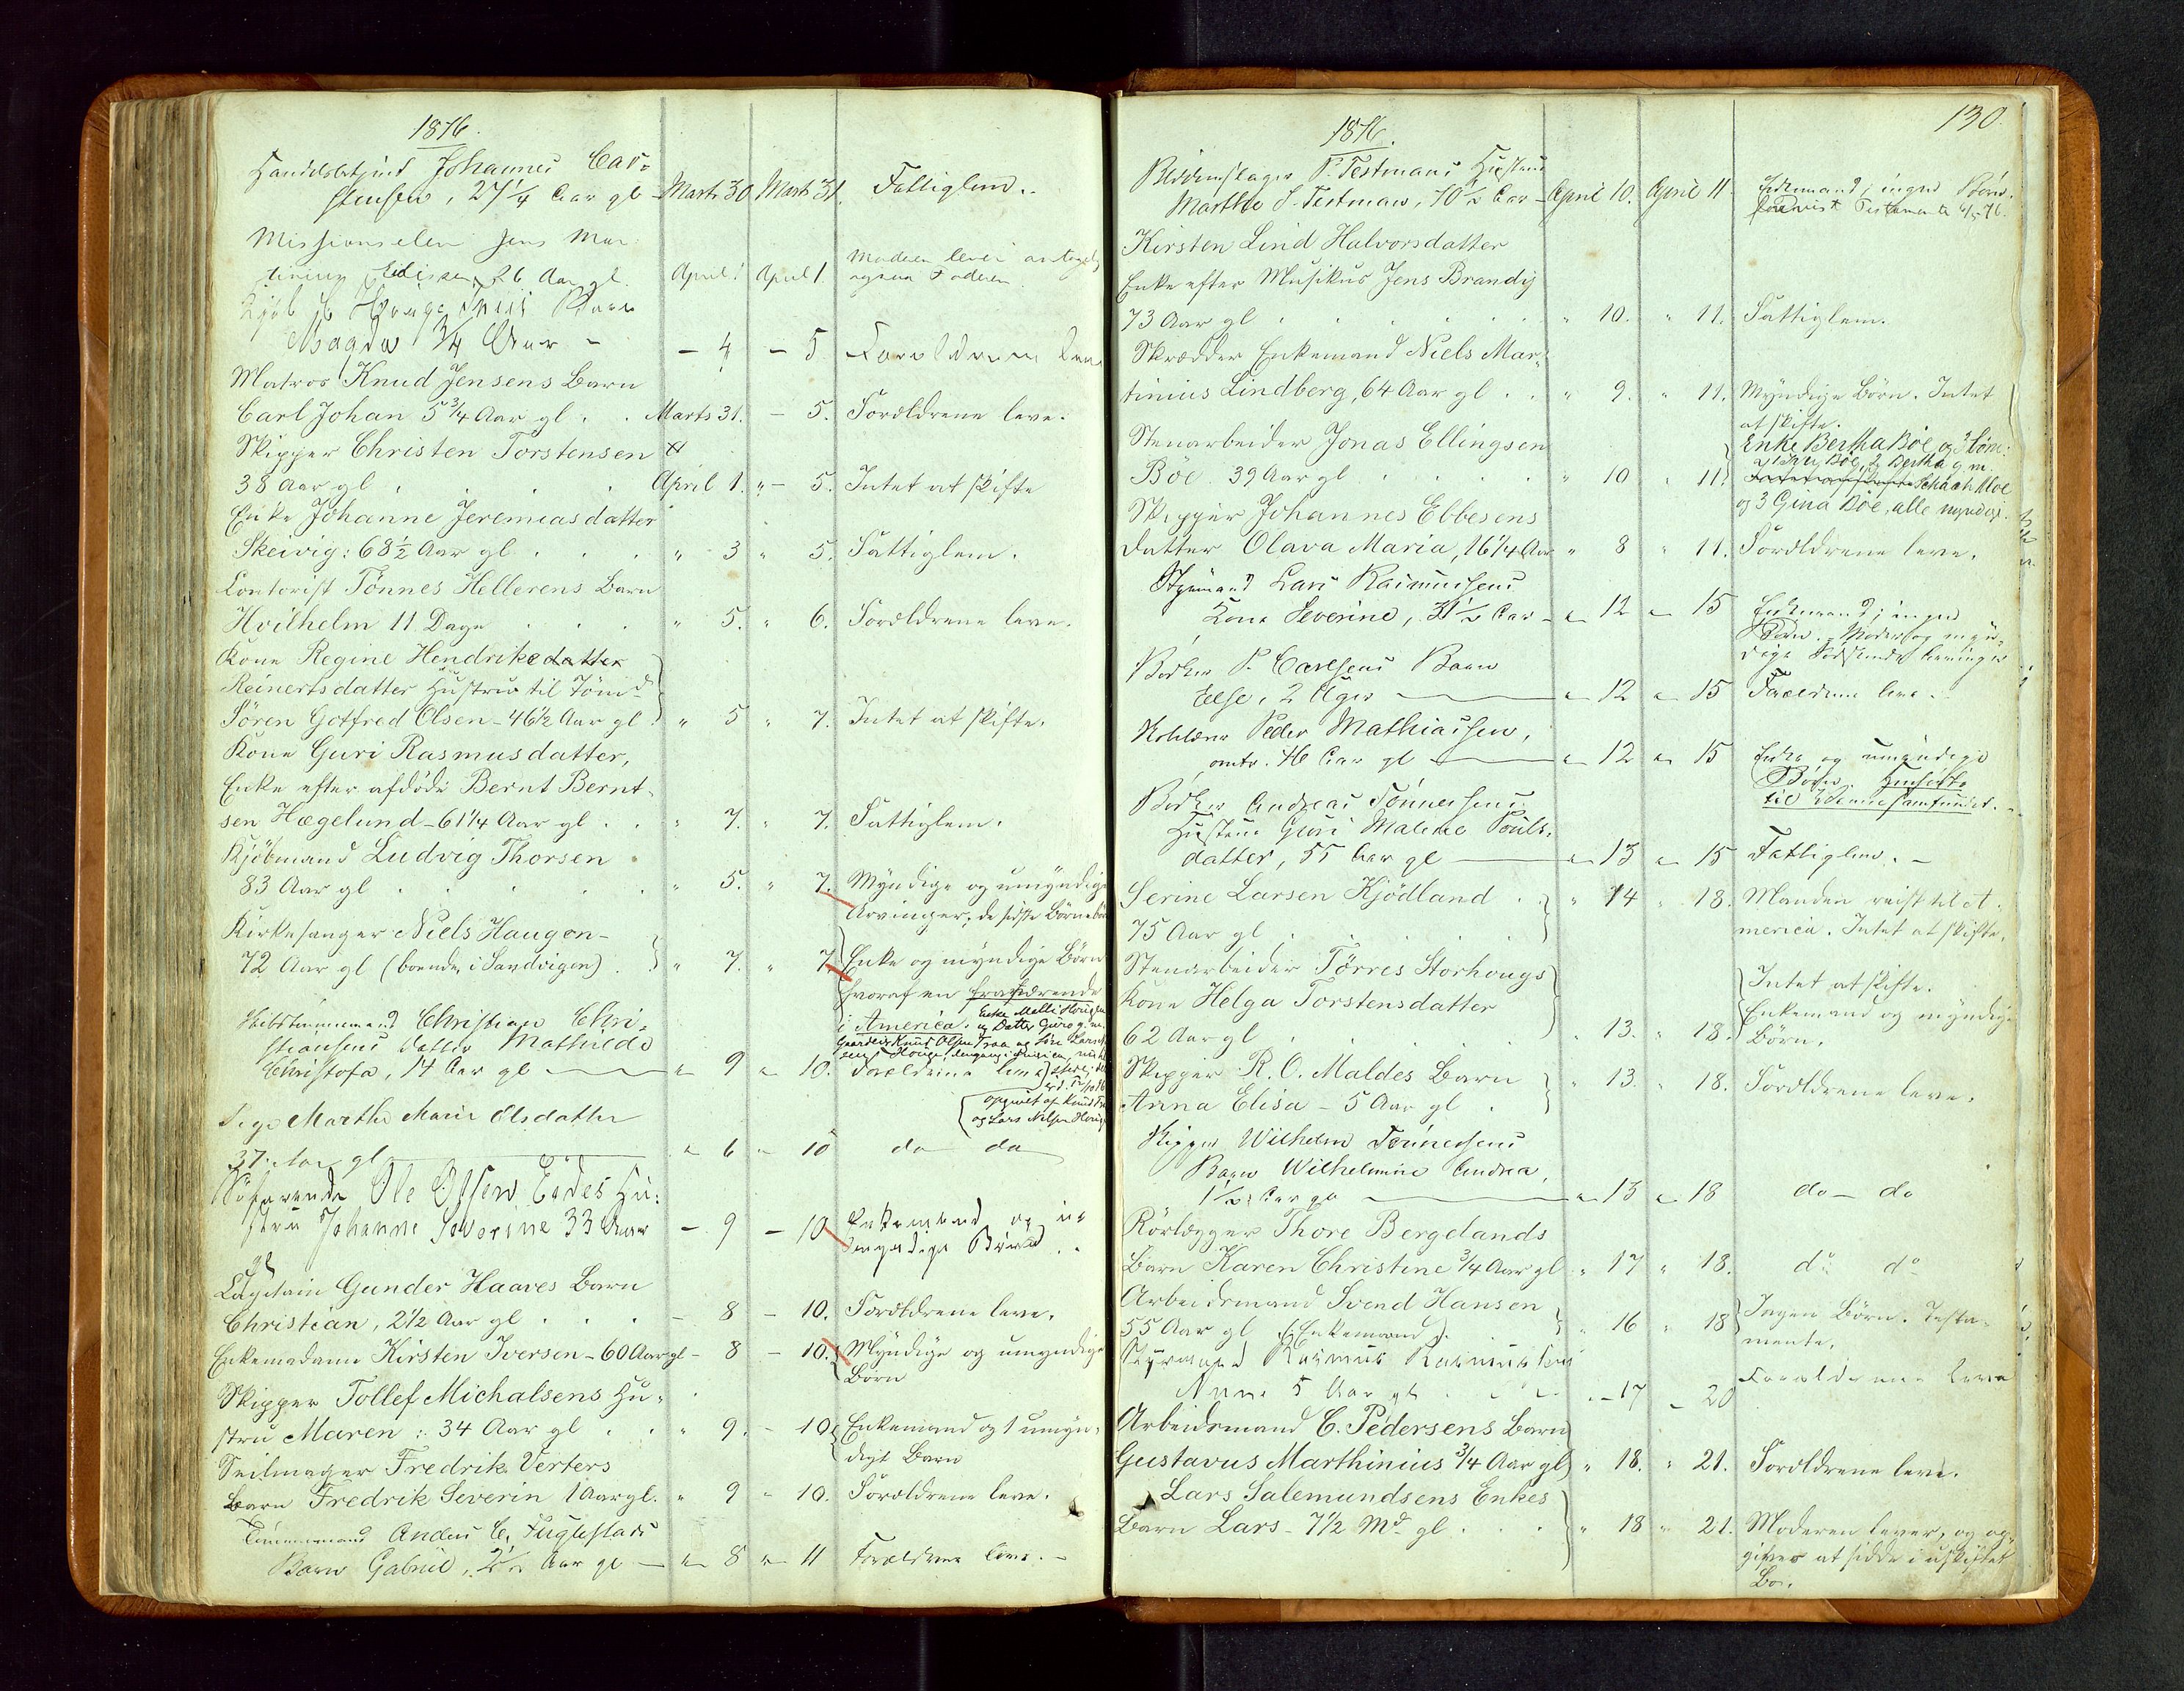 1876.
Handelsbetjent Johannes Car-
stensen, 27 1/4 Aar gl - Marts 30 Marts 31. Fattiglem.
Missionselev Jens Mar
tinius Eidissen, 26 Aar gl. April 1 April 1. Moderen lever antagelig
ogsaa Faderen
Kjøb Barn
Magda 3/4 Aar - - 4 - 5 Forældrene leve
Matros Knud Jensens Barn
Carl Johan 5 3/4 Aar gl . . Marts 31. - 5. Forældrene leve.
Skipper Christen Torstensen
38 Aar gl . . . April 1. " - 5. Intet at skifte
Enke Johanne Jeremiasdatter
Skeivig: 68 1/2 Aar gl . . . " 3 " 5. Fattiglem.
Contorist Tönnes Hellerens Barn
Hvilhelm 11 Dage . . . " 5. " 6. Forældrene leve.
Kone Regine Hendriksdatter
Reinertsdatter Hustru til Tömd
Sören Gotfred Olsen - 46 1/2 Aar gl. " 5 " 7. Intet at skifte.
Kone Guri Rasmusdatter,
Enke efter afdöde Bernt Bernt-
sen Hægelund - 61 1/4 Aar gl . . " 7. " 7. Fattiglem.
Kjöbmand Ludvig Thorsen
83 Aar gl . . . . " 5. " 7. Myndige og umyndige
Arvinger, de sidste Börnebörn
Kirkesanger Niels Haugen -
72 Aar gl (boende i Sandvigen). " 7. " 7. Enke og myndige Börn
hvoraf en fraværende
i America. Enke Malli Hougen
og Datter Guro g. m.
Gaardbr. Knud Olsen Traa og Lars
Houge
Skibstømmermand Christian Chri-
stiansens Datter Mathilde
Christofa, 14 Aar gl " 9 " 10. Forældrene leve
opgivet af Knud Tr
og Lars Nilsen Houge
Pige Marthe Marie Olsdatter
37 Aar gl " 6 " 10 do do
Søfarende Ole Olsen Eides Hu-
stru Johanne Severine 33 Aar - 9 - 10 Enkemand og u-
myndige Børn.
gl
Capitain Gunder Haaves Barn
Christian, 2 1/2 Aar gl . . . - 8 - 10. Forældrene leve.
Enkemadame Kirsten Iversen - 60 Aar gl - 8 - 10. Myndige og umyndige
Börn
Skipper Tollef Michalsens Hu-
stru Maren : 34 Aar gl . . " 9. - 10. Enkemand og 1 umyn-
digt Barn
Seilmager Fredrik Verters
Barn Fredrik Severin 1 Aar gl. " 9 " 10. Forældrene leve.
Tømmermand Anders C. Fuglestads
Barn Gabriel, 2 1/2 Aar gl - " 8 " 11 Forældrene leve. -
130.
1876.
P. Testmans Hustru
Marthe S. Testman, 70 1/2 Aar - April 10. April 11 Enkemand; ingen Børn.
Testamente
Kirsten Lind Halvorsdatter
Enke efter Musikus Jens Brandij
73 Aar gl . . . . " 10. " 11. Fattiglem.
Skrædder Enkemand Niels Mar-
tinius Lindberg, 64 Aar gl . . " 9. " 11. Myndige Börn. Intet
at skifte.
Stenarbeider Jonas Ellingsen
Böe. 39 Aar gl . . . . " 10 " 11. Enke Bertha Böe og 3 Börn:
Böe, 2 Bertha g. m.
Intet at skifte
og 3 Gina Böe, alle myndige.
Skipper Johannes Ebbesens
Datter Olava Maria, 16 1/4 Aar " 8 " 11. Forældrene leve.
Styrmand Lars Rasmussens
Kone Severine, 31 1/2 Aar - " 12 " 15 Enkemand; ingen
Børn. Moder og myn-
dige Sødskende Arvinger
Bødker P. Carlsens Barn
Else, 2 Uger " 12 " 15 Forældrene leve.
Peder Mathiassen,
omtr. 46 Aar gl " 12 " 15 Enke og umyndige
Børn. Henført
til
Bødker Andreas Tönnessens
Hustru Guri Malene Pouls-
datter, 55 Aar gl " 13 " 15 Fattiglem. -
Serine Larsen Kjödland . " 14 " 18. Manden reist til A-
75 Aar gl . . . . merica. Intet at skifte.
Stenarbeider Törres Storhougs
Kone Helga Torstensdatter
62 Aar gl . . . . " 13. " 18. Intet at skifte.
Enkemand og myndige
Börn.
Skipper R. O. Maldes Barn
Anna Elisa - 5 Aar gl . " 13. " 18. Forældrene leve.
Skipper Wilhelm Tönnessens
Barn Wilhelmine Andrea,
1 1/2 Aar gl " 13 " 18 do - do
Rörlægger Thore Bergelands
Barn Karen Christine 3/4 Aar gl " 17 " 18. do do
Arbeidsmand Svend Hansen
55 Aar gl. (Enkemand). " 16 " 18 Ingen Börn. Testa-
mente.
Styrmand Rasmus Rasmussens
Anna 5 Aar gl . . . - 17 - 20 Forældrene leve
Arbeidsmand C. Pedersens Barn
Gustavus Marthinius 3/4 Aar gl " 18. " 21. Forældrene leve.
Lars Salemundsens Enkes
Barn Lars - 7 1/2 Md. gl . . . " 18 " 21. Moderen lever, og op-
giver at sidde i uskiftet
Bo.